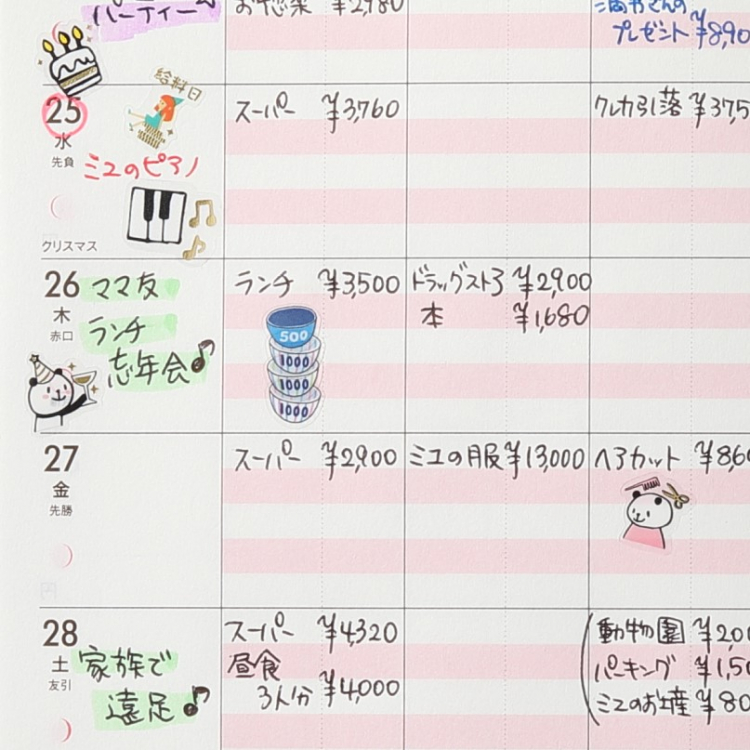 パーティー
お惣菜 ¥2,980
プレゼント ¥8,90
25
水
先負
クリスマス
給料日
ミユのピアノ
スーパー ¥3,760
クレカ引落 ¥37,5
26
木
赤口
ママ友
ランチ
忘年会♪
ランチ ¥3,500
500
1000
1000
1000
ドラッグスト ¥2,900
本 ¥1,680
27
金
先勝
スーパー ¥2,900
ミユの服 ¥13,000
ヘアカット ¥8,60
28
土
友引
家族で
遠足♪
スーパー ¥4,320
昼食
3人分 ¥4,000
動物園 ¥2,00
パーキング ¥1,50
ミユのお土産 ¥80